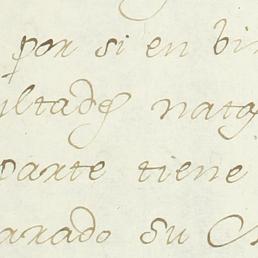 por si en vi
ultades nat
parte tiene
arado su